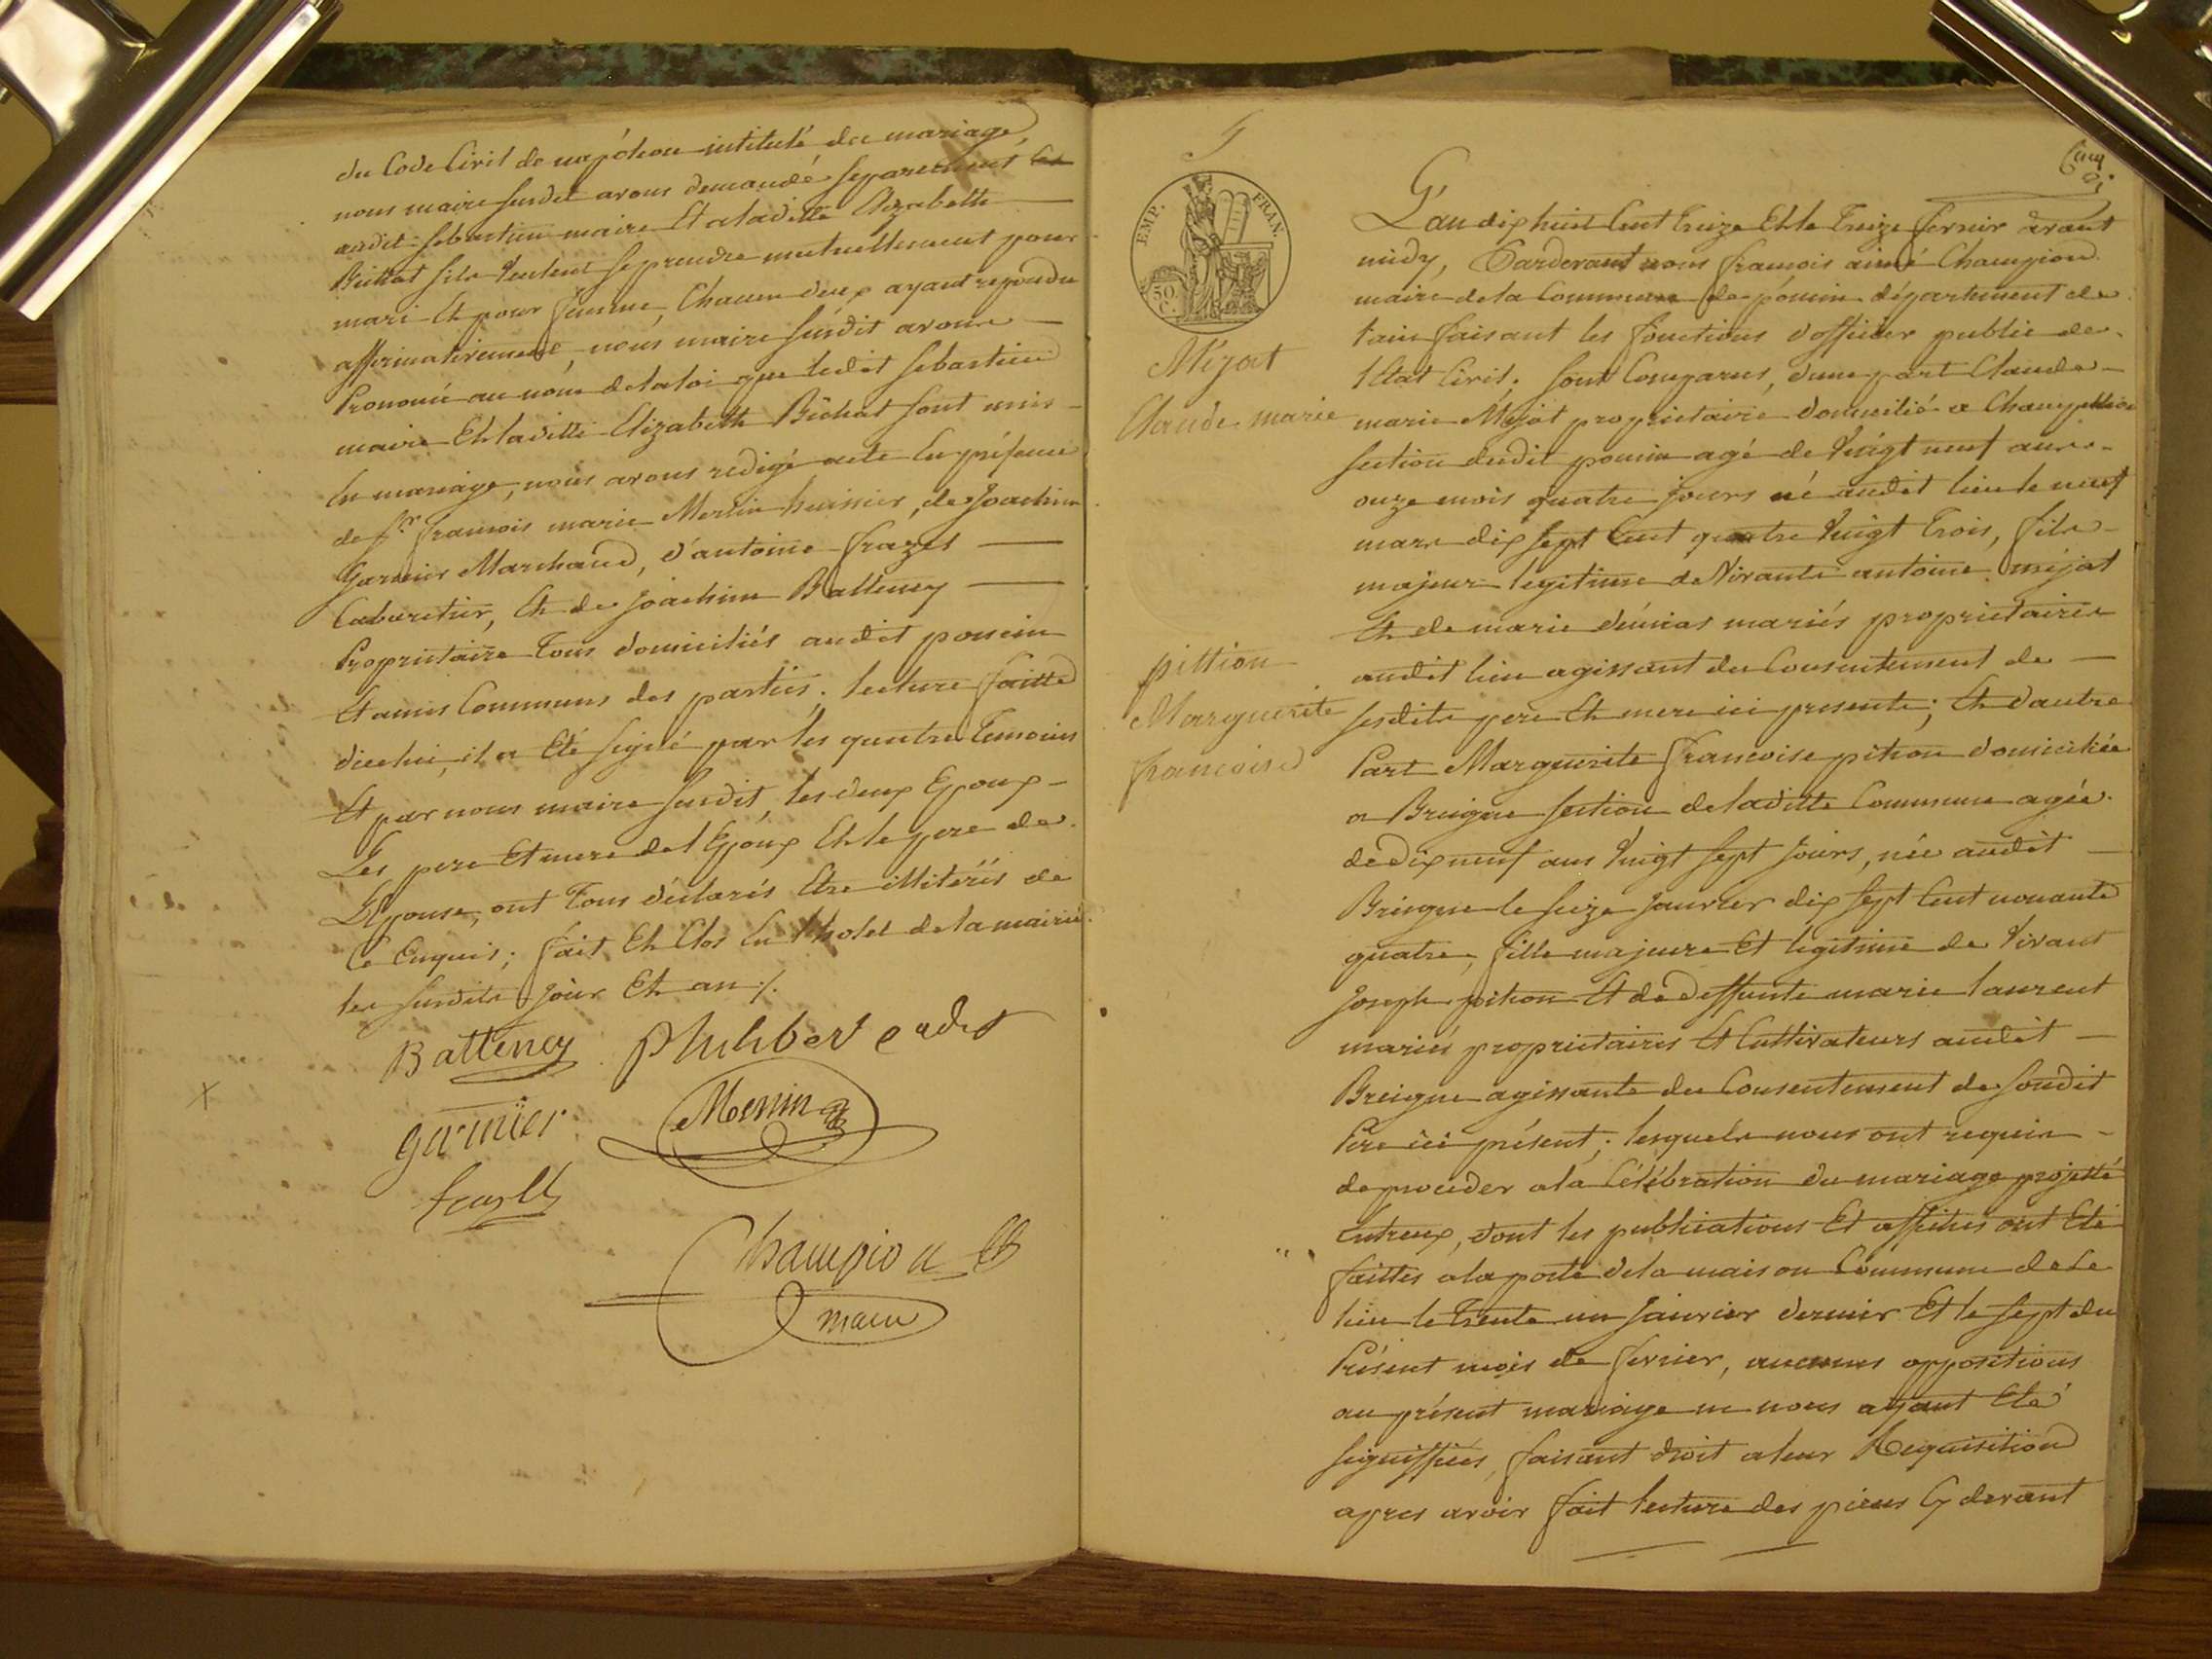 du Code Civil de napóleon intitulé du mariage,
nous maire susdit avons demandé separement
audit sebastien maire Et a laditte Elizabeth
Bichat sils veulent se prendre mutuellement pour
mari Et pour femme, Chacun deux ayant repondu
affirmativement, nous maire susdit avons
Prononcé au nom de la loi que ledit sebastien
maire Et laditte Elizabeth Bichat sont unis
En mariage, nous avons redigé acte En présence
de sr. francois marie Mermin huissier, de Joachim
Garnier Marchand, d'antoine frazet
Cabaretier, Et de Joachim Batteney
Proprietaire Tous domiciliés audit poncin
Et amis Communs des parties; lecture faitte
dicelui, il a Eté signé par les quatre Temoins
Et par nous maire susdit, les deux Epoux
Les pere Et mere de l'Epoux Et le pere de
L'Epouse, ont Tous déclarés Etre illiterés de
Ce Enquis; fait Et Clos En l'hotel de la mairie
les susdits jour Et an ./.
Batteney Philibert cadet
garnier Mermin
frazet
Champion
maire
5
Cinq
EMP. FRAN.
50 C.
Méjat
Claude marie
pittion
Marguerite
francoise
L'an dix huit Cent treize Et le Treize fevrier avant
midy, Pardevant nous francois aimé Champion
maire de la Commune de poncin département de
l'ain faisant les fonctions d'officier public de
l'Etat Civil. sont Comparus, dune part Claude
marie Méjat proprietaire domicilié a
section dudit poncin agé de Vingt neuf ans
onze mois quatre jours né audit lieu le neuf
mars dix sept Cent quatre Vingt Trois, fils
majeur legitime de Vivants antoine méjat
Et de marie mariés proprietaires
audit lieu agissant du Consentement de
sesdits pere Et mere ici presents; Et d'autre
Part Marguerite francoise pition domiciliée
a Breigne section de laditte Commune agée
de dix neuf ans Vingt sept jours, née audit
Breigne le seize janvier dix sept Cent nonante
quatre, fille majeure Et legitime de Vivant
joseph pition Et de deffunte marie laurent
mariés proprietaires Et Cultivateurs audit
Breigne agissante du Consentement de sondit
Pere ici présent; lesquels nous ont requis
de proceder a la Célébration du mariage projetté
Entreux, dont les publications Et affiches ont Eté
faittes a la porte de la maison Commune de Ce
lieu le Trente un janvier dernier Et le sept du
Présent mois de fevrier, aucunes oppositions
au présent mariage ne nous ayant Eté
signiffiées, faisant droit a leur Requisition
apres avoir fait lecture des pieces Cy devant